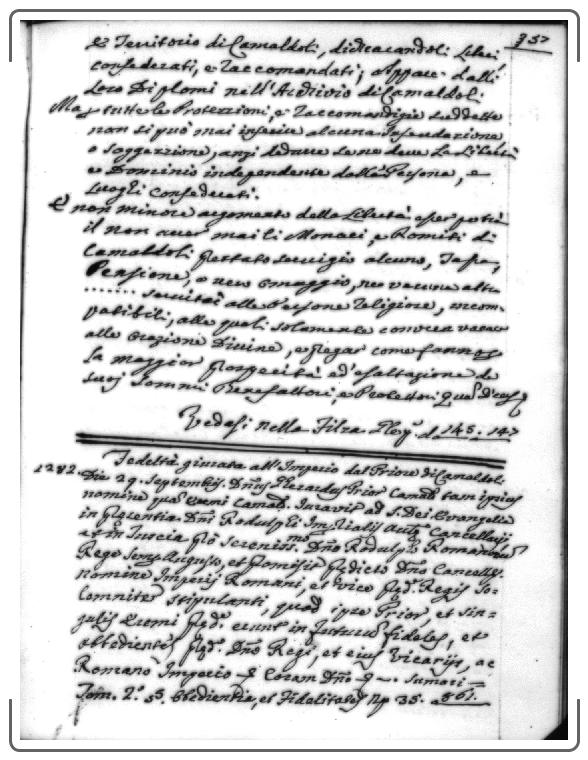 357
e Territorio di Camaldoli, dichiarandoli Liberi
confederati, e Raccomandati; appare dalli
Loro Diplomi nell'Archivio di Camaldoli.
Ma tutte le Protezzioni, e Raccomandigie suddette
non si può mai inferire alcuna Infeudazione
o soggezzione, anzi dedurre se ne deve La Libertà
e Dominio independente dalla Persone, e
Luoghi confederati.
E non minore argomento della Libertà esser potrà
il non aver mai li Monaci, e Romiti di
Camaldoli prestato servigio alcuno, Tassa,
Pensione, o vero omaggio, ne veruna altra
....... servitù alle Persone Religiose, incom-
patibili, alle quali solamente conviene vacare
alle orazione Divine, e pregar come fanno
La maggior prosperità ed'esaltazione de
suoi Sommi Benefattori, e Protettori
Vedasi nella Filza 145. 147
1282. Fedeltà giurata all'Imperio dal Priore di Camaldol.
Die 29. Septembris. Dñus Gherardus Prior Camald. tam ipsius
nomine quã Eremi Camald. Iuravit ad S. Dei Evangelia
in Florentia Dñi Rodulphi Imperialis Aulę Cancellarij
et in Tuscia Sereniss.mo Dño Rodulpho Romanorum
Rege Semp Augusto, et promisit predicto Dño Cancell.
nomine Imperij Romani, et vice Regis So-
lemniter stipulanti, quod ipse Prior, et sin-
guli Eremi erunt in futurum fideles, et
obbedientes Dño Regi, et eius Vicarijs, ac
Romano Imperio Coram Dño
Tom. 2.° 55. Obbedientia, et Fidelitates Np 35. a 561.